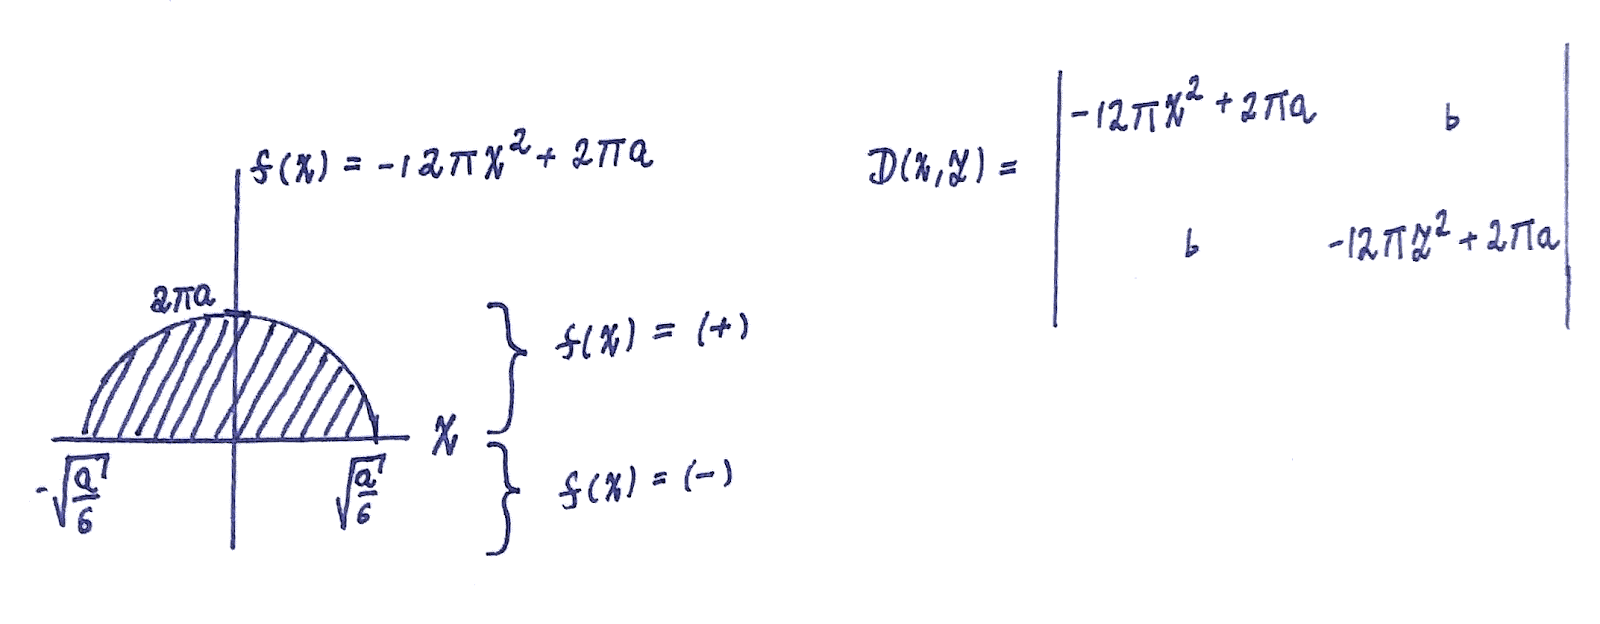 f(x) = -12πx² + 2πa
2πa
x
-√(a/6)
√(a/6)
} f(x) = (+)
} f(x) = (-)
D(x,y) = | -12πx² + 2πa b |
| b -12πy² + 2πa |